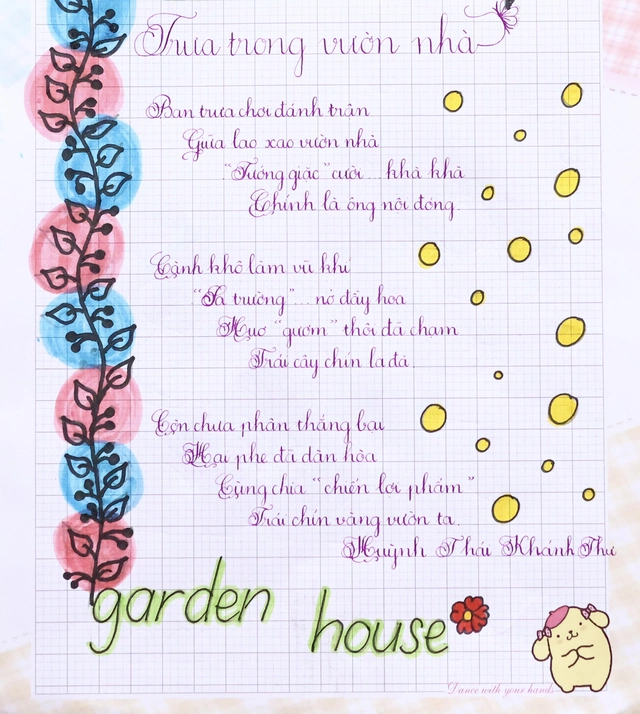 Trưa trong vườn nhà
Ban trưa chơi đánh trận
Giữa lao xao vườn nhà
"Tướng giặc" cười... khà khà
Chính là ông nội đóng.
Cành khô làm vũ khí
"Sa trường"... nở đầy hoa
Múa "gươm" thôi đã chạm
Trái cây chín la đà.
Còn chưa phân thắng bại
Hai phe đã dàn hòa
Cùng chia "chiến lợi phẩm"
Trái chín vàng vườn ta.
Huỳnh Thái Khánh Thư
garden house
Dance with your hands